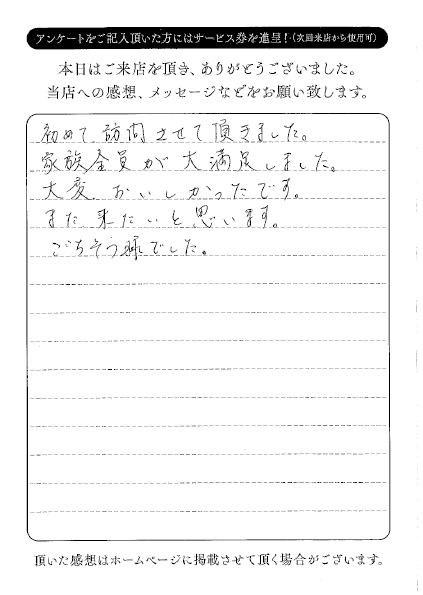 アンケートをご記入頂いた方にはサービス券を進呈！(次回来店から使用可)
本日はご来店を頂き、ありがとうございました。
当店への感想、メッセージなどをお願い致します。
初めて訪問させて頂きました。
家族全員が大満足しました。
大変おいしかったです。
また来たいと思います。
ごちそう様でした。
頂いた感想はホームページに掲載させて頂く場合がございます。